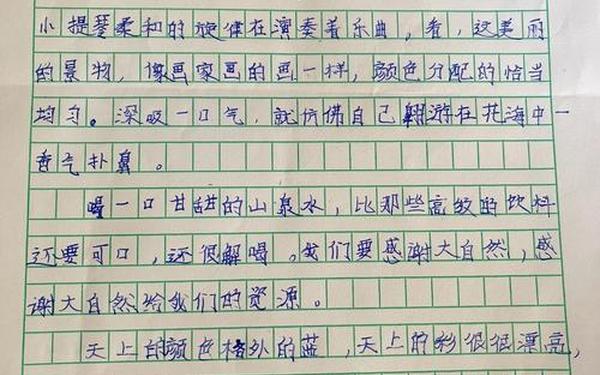 小提琴柔和的旋律在演奏着乐曲。看,这美丽
的景物,像画家画的画一样,颜色分配的恰当
均匀。深吸一口气,就仿佛自己翱游在花海中一
香气扑鼻。
喝一口甘甜的山泉水,比那些高级的饮料
还要可口,还很解喝。我们要感谢大自然,感
谢大自然给我们的资源。
天上的颜色格外的蓝,天上的彩很很漂亮,